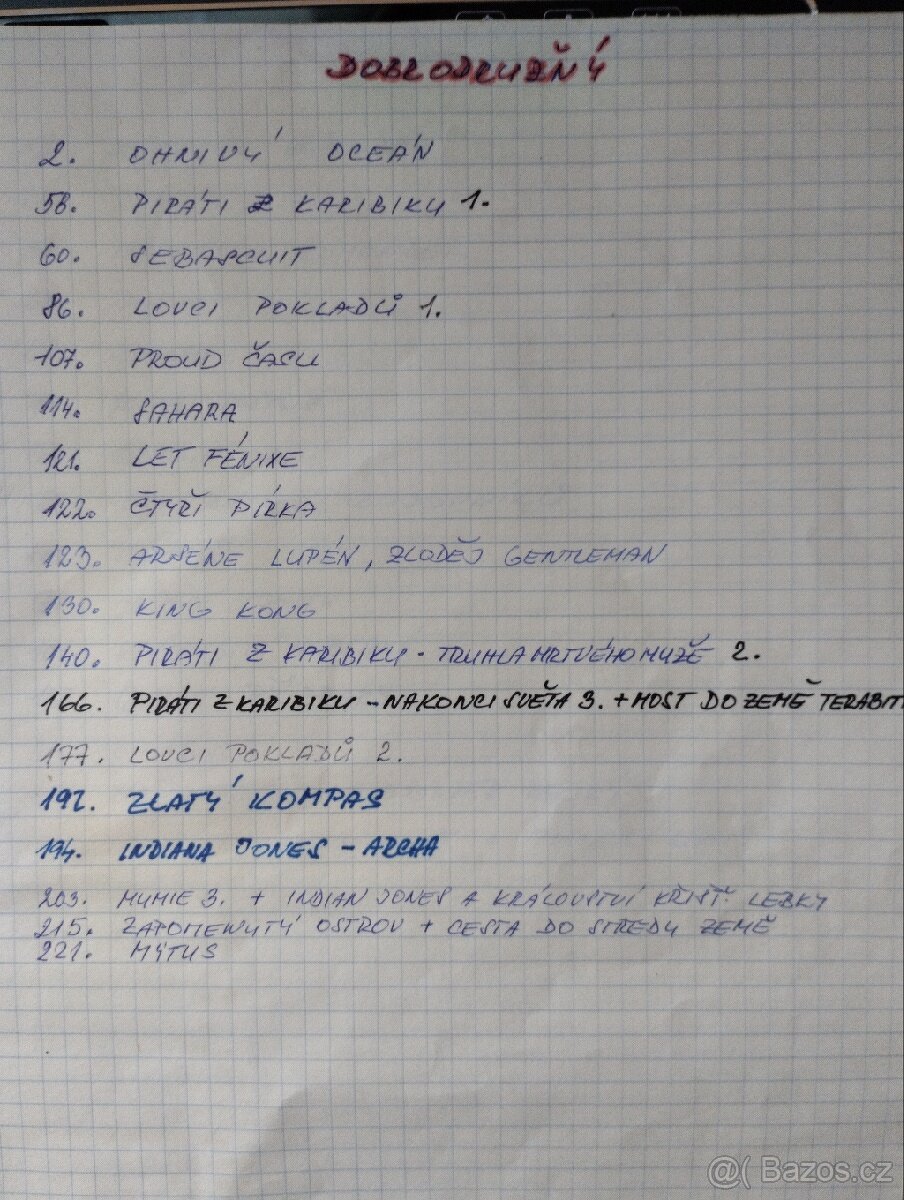 DOBRODRUŽNÝ
2. OHNIVÝ OCEÁN
58. PIRÁTI Z KARIBIKU 1.
60. SEBASCUIT
86. LOVCI POKLADŮ 1.
107. PROUD ČASU
114. SAHARA
121. LET FÉNIXE
122. ČTYŘI PÍRKA
123. ARSÉNE LUPÉN, ZLODĚJ GENTLEMAN
130. KING KONG
140. PIRÁTI Z KARIBIKU - TRUHLA MRTVÉHO MUŽE 2.
166. PIRÁTI Z KARIBIKU - NA KONCI SVĚTA 3. + MOST DO ZEMĚ TERABIT
177. LOVCI POKLADŮ 2.
192. ZLATÝ KOMPAS
194. INDIANA JONES - ARCHA
203. MUMIE 3. + INDIAN JONES A KRÁLOVSTVÍ KŘIŠŤ. LEBKY
215. ZAPOMENUTÝ OSTROV + CESTA DO STŘEDU ZEMĚ
221. MÝTUS
@( Bazos.cz